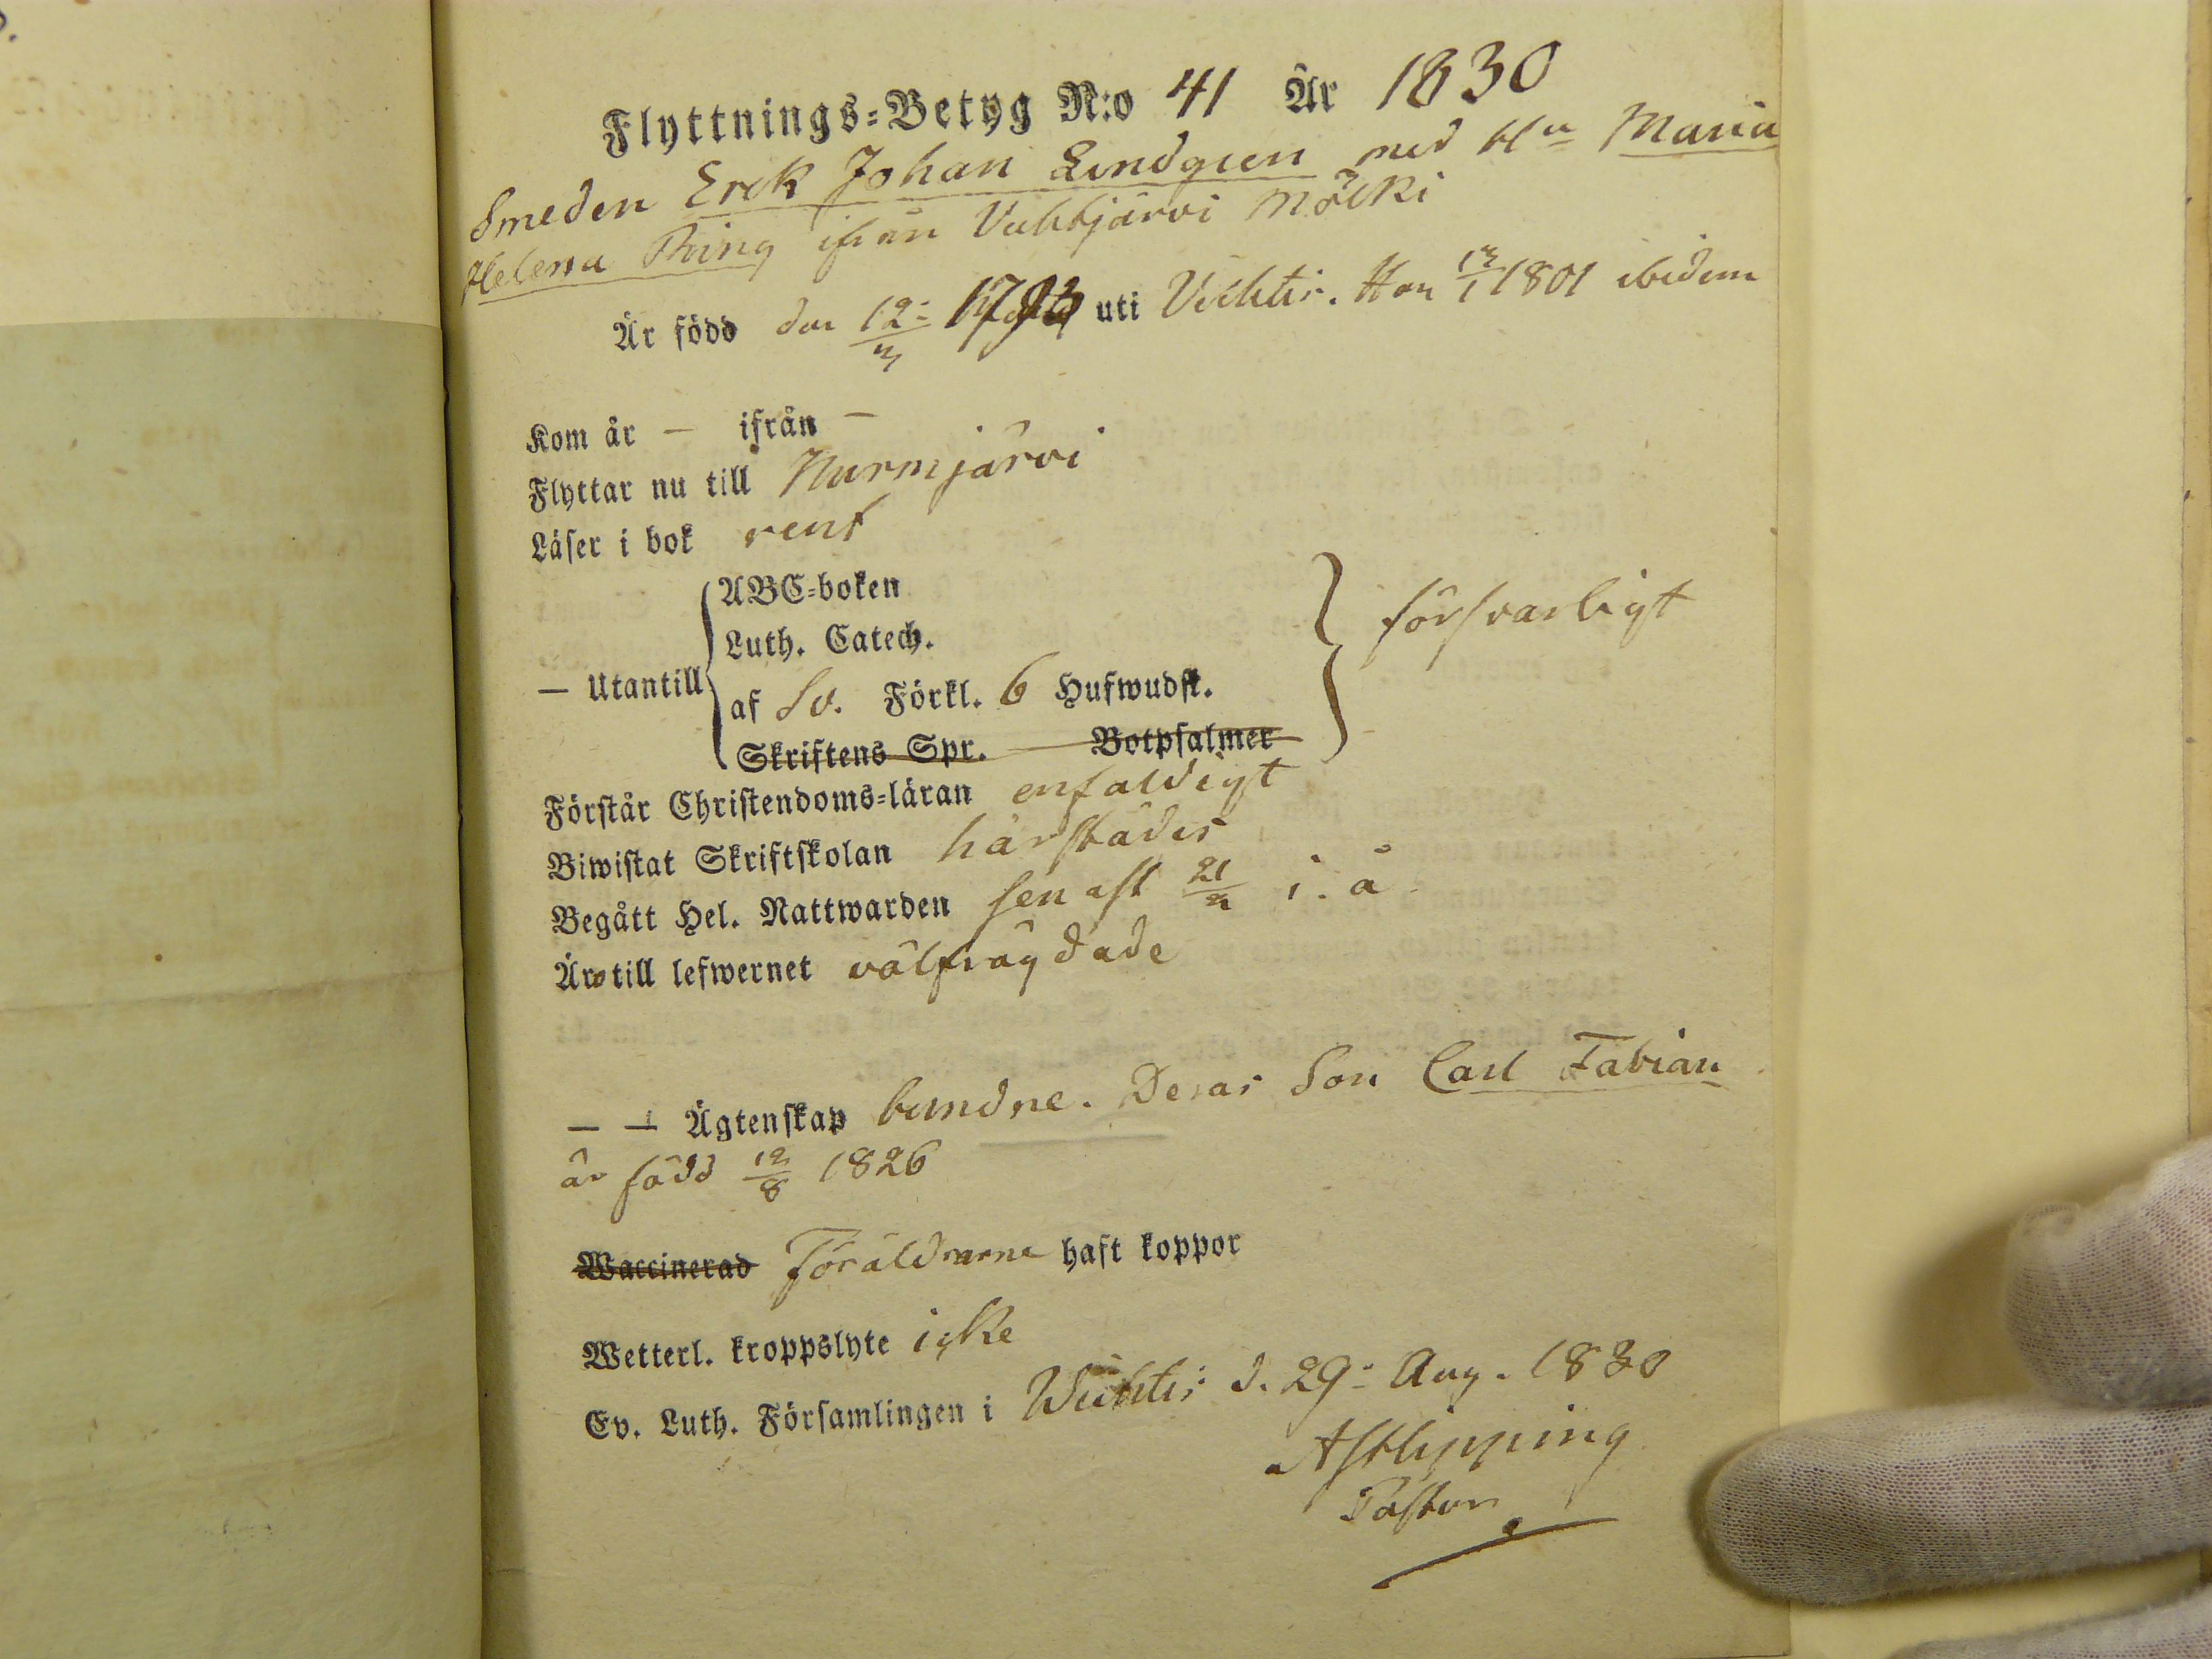 Flyttnings=Betyg N:o 41 År 1830
Smeden Erik Johan Lindgren med Hu Maria
Helena Ring ifrån Vichtjärvi Mölki
Är född den 12 uti Vichtis. Hon 13/1 1801 ibidem
Kom år — ifrån —
Flyttar nu till Nurmjärvi
Läser i bok rent
ABC=boken
Luth. Catech.
försvarligt
— Utantill
af Sv. Förkl. 6 Hufwudst.
Skriftens Spr. Botpsalmer
Förstår Christendoms=läran enfaldigt
Biwistat Skriftskolan härstädes
Begått Hel. Nattwarden senast i. å
Äro till lefwernet välfrägdade
— — Ägtenskap bundne. Deras Son Carl Fabian
är född 12/8 1826
Waccinerad Föräldrarne haft koppor
Wetterl. kroppslyte icke
Ev. Luth. Församlingen i Wichtis d. 29 Aug. 1830
Pastor